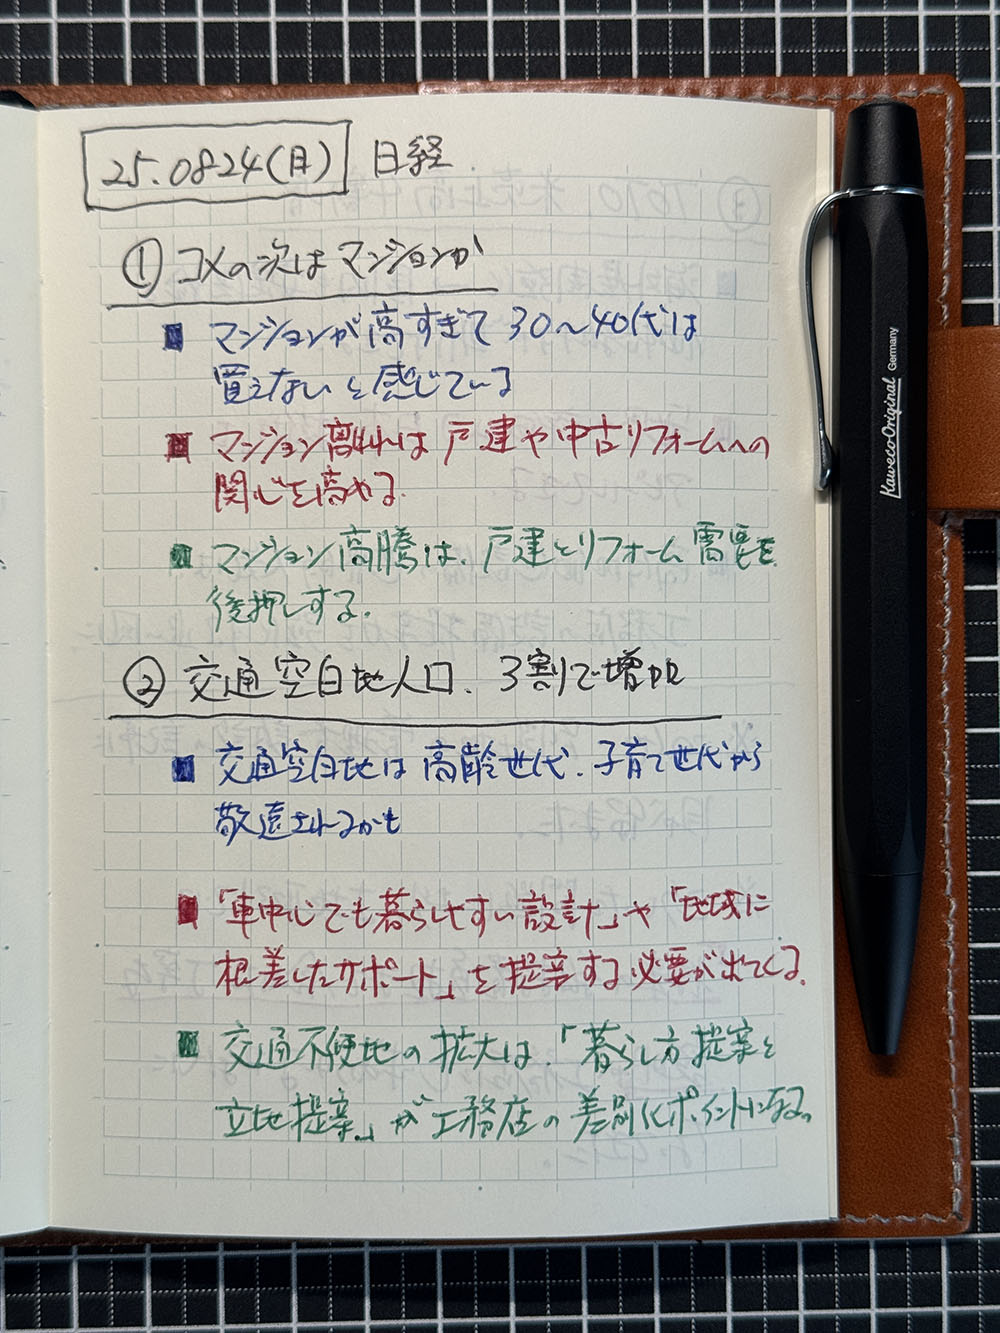 25.0824(月) 日経
① コメの次はマンションか
■ マンションが高すぎて30〜40代は
買えないと感じている
■ マンション離れは戸建や中古リフォームへの
関心を高める.
■ マンション高騰は、戸建とリフォーム需要を
後押しする.
② 交通空白地人口、3割で増加
■ 交通空白地は高齢世代、子育て世代から
敬遠されるかも
■ 「車中心でも暮らしやすい設計」や「地域に
根差したサポート」を提案する必要が出てくる.
■ 交通不便地の拡大は、「暮らし方提案と
立地提案」が工務店の差別化ポイントになる。
Kaweco Original Germany